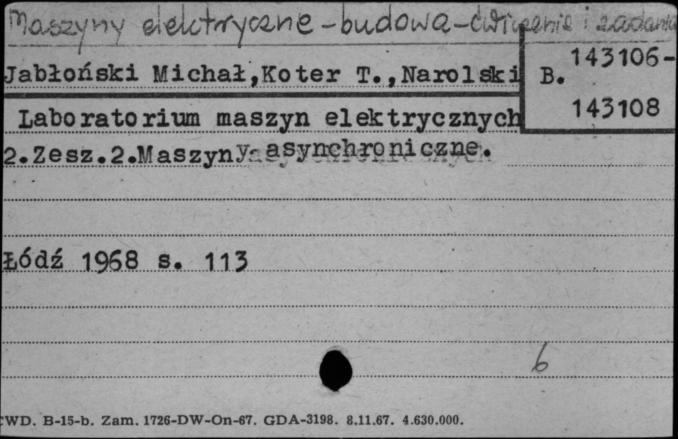 Maszyny elektryczne - budowa - ćwiczenia i zadania
Jabłoński Michał,Koter T.,Narolski
B. 143106-
143108
Laboratorium maszyn elektrycznych
2.Zesz.2.Maszyny asynchroniczne.
Łódź 1968 s. 113
6
CWD. B-15-b. Zam. 1726-DW-On-67. GDA-3198. 8.11.67. 4.630.000.